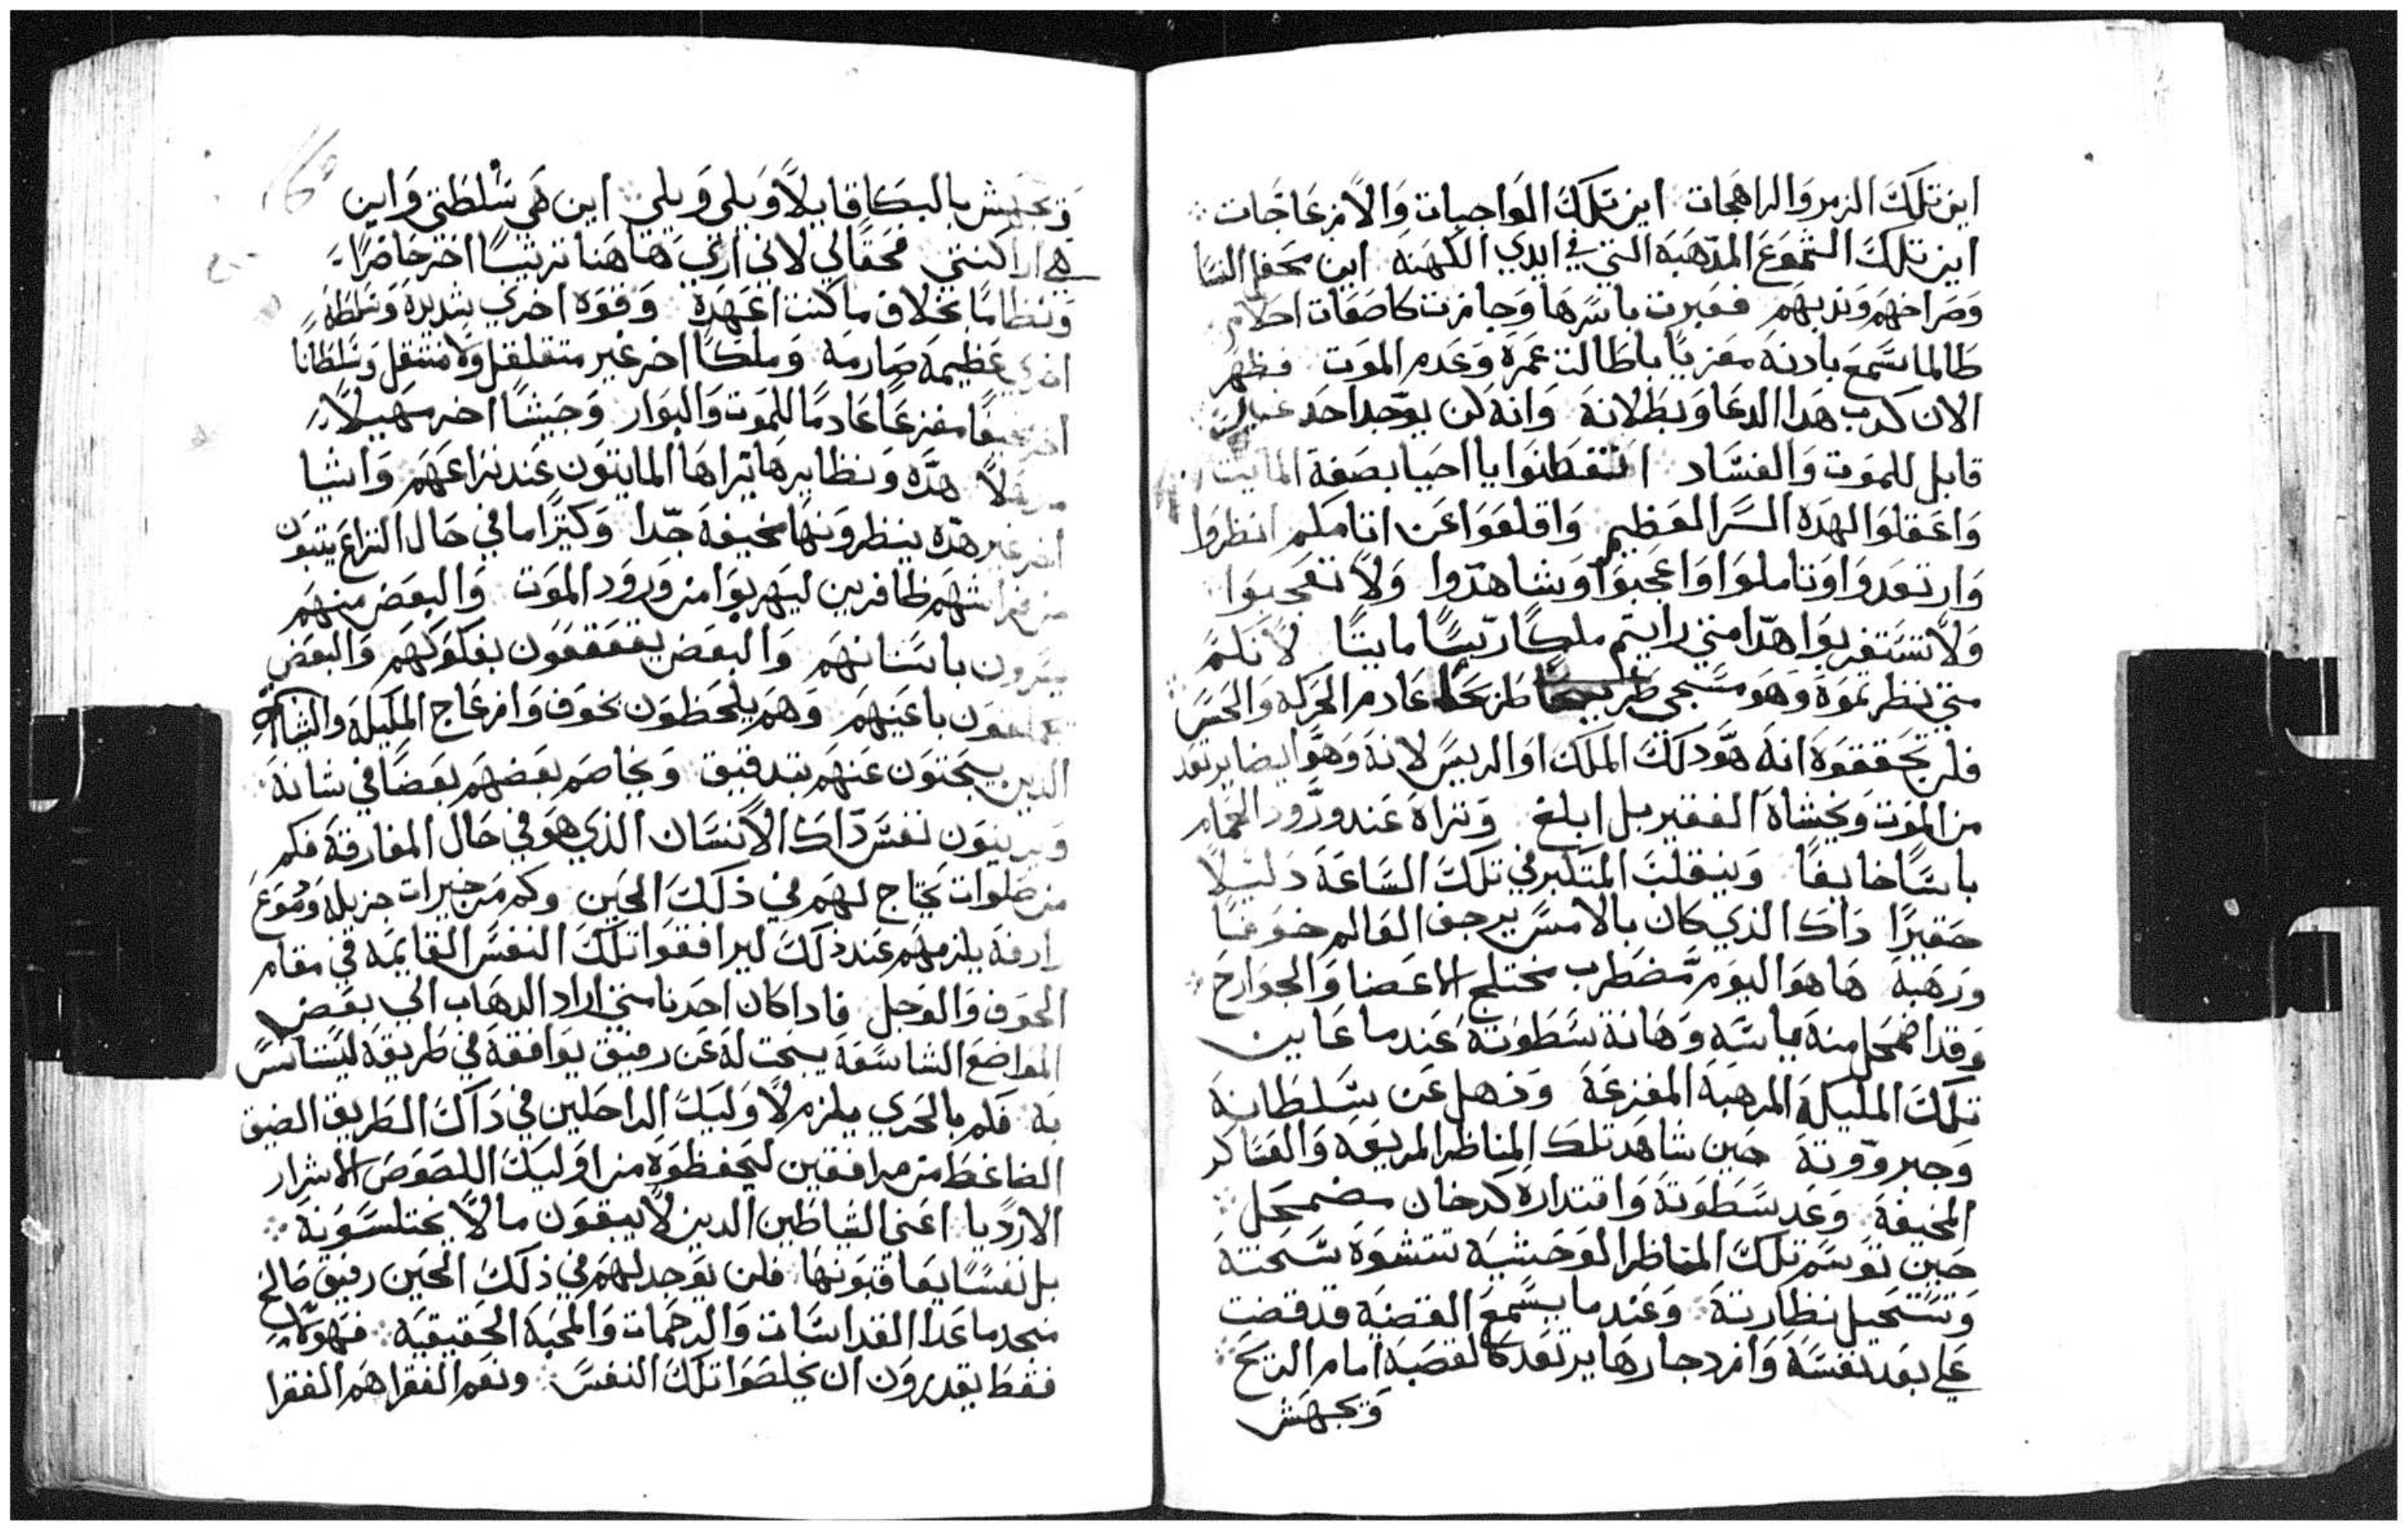 اين تلك الزمر والراهجات اين تلك الواجبات والانزعاجات
اين تلك الشموع المدهبه التي في ايدي الكهنه اين محفل النسا
وصراخهم وندبهم فعبرت باسرها وجازت كاضغات احلام
طالما تسمع بادنه معزيا باطالت عمره وعدم الموت فظهر
الان كدب هدا الدعا وبطلانه وانه لن يوجد احد غير
قابل للموت والفساد اتقطنوا يا احيا بصفة المايت
واعقلوا لهده السر العظيم واقلعوا عن اتامكم انظروا
وارتعدوا وتاملوا واعجبوا وشاهدوا ولا تعجبوا
ولا تستغربوا هدا متي رايتم ملكا ريسا مايتا لانكم
متي تنظرتموه وهو مسجي طريحا عادم الحركه والحس
فلن تحققوه انه هو دلك الملك او الريس لانه وهو ايضا يرتعد
من الموت ويخشاه الفقير بل ابلغ وتراه عند ورود الحمام
باسا خايفا وينقلب المتكبر في تلك الساعة دليلا
حقيرا داك الذي كان بالامس يرجف العالم خوفا
ورهبة ها هو اليوم مضطرب مختلج الاعضا والجوارح
وقد اضمحل منه باسه وهانة سطوته عندما عاين
تلك المليكة المرهبة المفزعة وذهل عن سلطانه
وجبروته حين شاهد تلك المناظر المريعه والعساكر
المخيفة وعد سطوته واقتداره كدخان مضمحل
حين توسم تلك المناظر الوحشيه تتشوه سحنته
وتستحيل نظارته وعندما يسمع القضيه قد قضت
علي بعد نفسه وازدجارها يرتعد كالقصبه امام الريح
ويجهش
ويجهش بالبكا قايلا ويلي ويلي اين هي سلطتي واين
هي اراكنتي محقا لي لاني اري هاهنا ترتيبا اخر حاضرا
ونظاما بخلاف ما كنت اعهده وقوه اخري شديده وسلطة
اخري عظيمه صارمه وملكا اخر غير متقلقل ولا منتقل وسلطانا
اخر مخيفا مفزعا عادما للموت والبوار وجيشا اخر مهيلا
هده ونظايرها يراها المايتون عند نزاعهم واشيا
اخر غير هده ينظرونها مخيفة جدا وكثيرا ما في حال النزاع يثبون
من فراشهم ظافرين ليهربوا من ورود الموت والبعض منهم
يصرون باسنانهم والبعض يقعقعون بفكوكهم والبعض
باعينهم وهم يلحظون بخوف وانزعاج المليكة والشياطين
الدين يبحتون عنهم بتدقيق ويخاصم بعضهم بعضا في شانه
ويرينون نفس داك الانسان الذي هو في حال المفارقة فكم
من صلوات يحتاج لهم في ذلك الحين وكم من خيرات جزيله ودموع
دارفة يلزمهم عند ذلك ليرافقوا تلك النفس القايمه في مقام
الخوف والوجل فادا كان احدنا متي اراد الدهاب الي بعض
المواضع الشاسعة يبحت له عن رفيق يوافقه في طريقه ليستانس
به فكم بالحري يلزم لاوليك الراحلين في داك الطريق الضيق
الضاغط من مرافقين ليحفظوه من اوليك اللصوص الاشرار
الارديا اعني الشاطين الدين لا يبقون مالا يختلسونه
بل نفسا يعاقبونها فلن يوجد لهم في ذلك الحين رفيق صالح
منجد ما عدا القداسات والرحمات والمحبة الحقيقيه فهولاي
فقط يقدرون ان يخلصوا تلك النفس ونعم الفقرا هم الفقرا